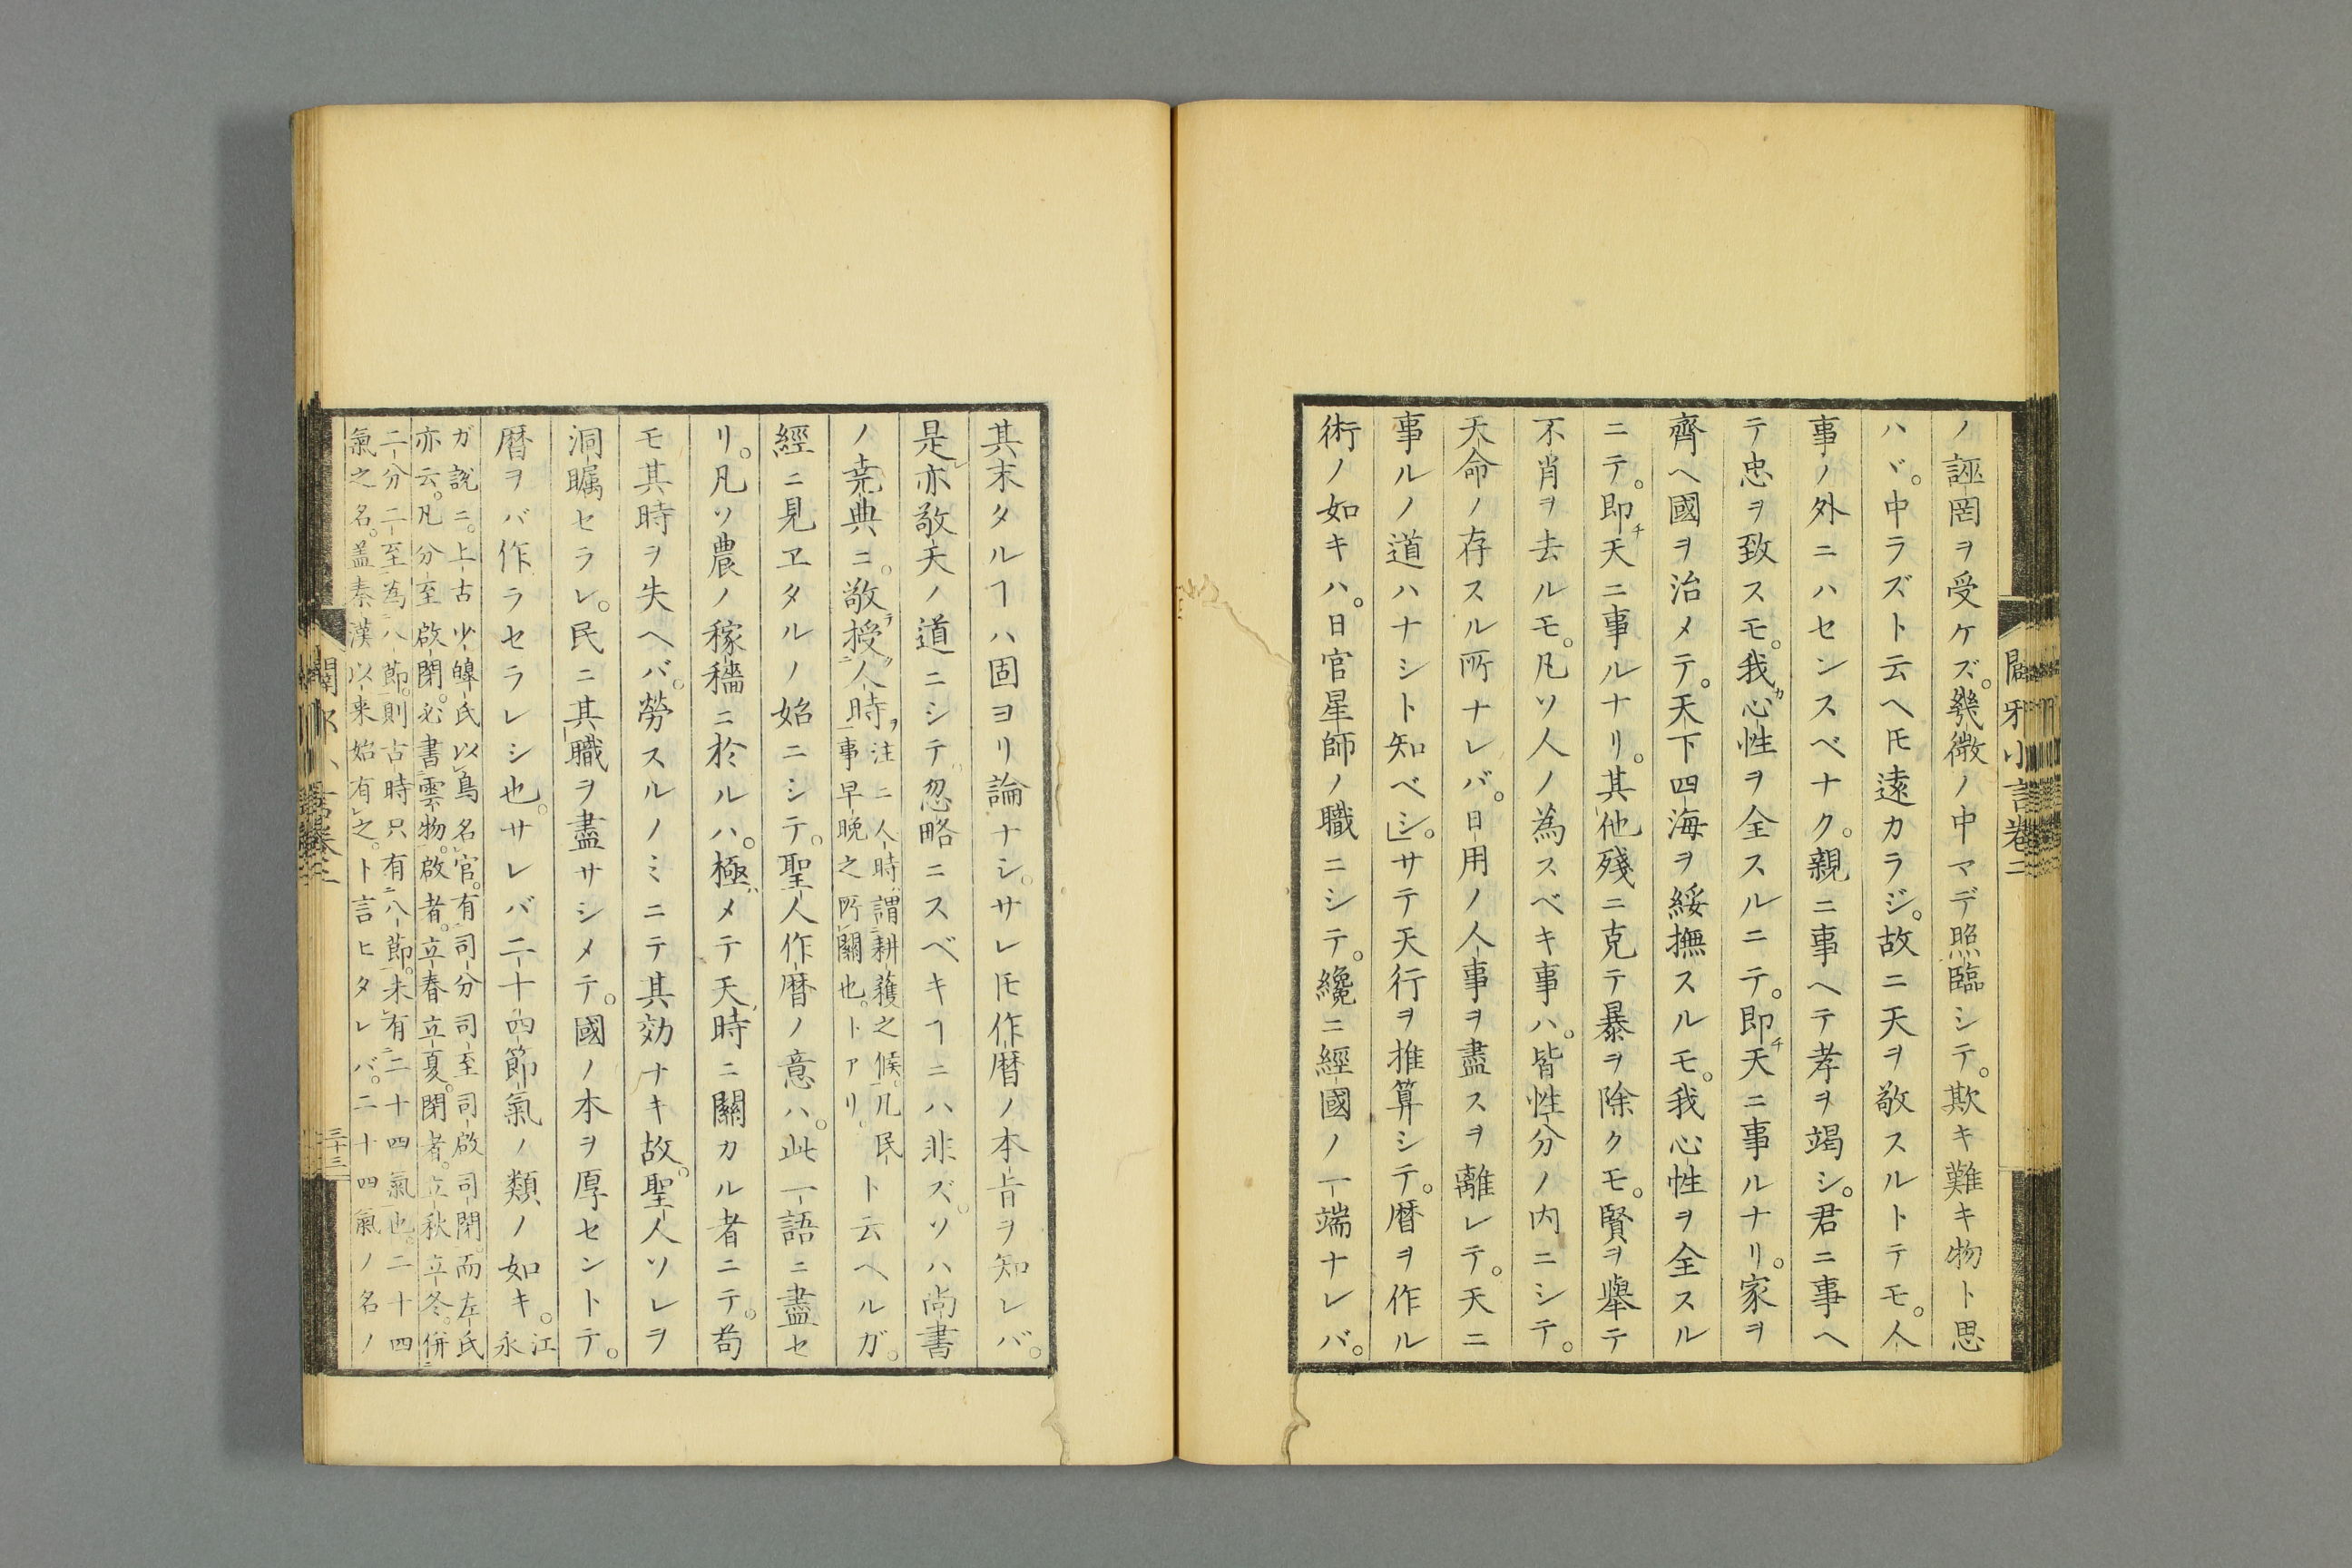 ノ誣罔ヲ受ケズ。幾微ノ中マデ照臨シテ。欺キ難キ物ト思
ハヾ。中ラズト云ヘ𪜈遠カラジ。故ニ天ヲ敬スルトテモ。人
事ノ外ニハセンスベナク。親ニ事ヘテ孝ヲ竭シ。君ニ事ヘ
テ忠ヲ致スモ。我カ心性ヲ全スルニテ。即チ天ニ事ルナリ。家ヲ
齊ヘ國ヲ治メテ。天下四海ヲ綏撫スルモ。我心性ヲ全スル
ニテ。即チ天ニ事ルナリ。其他殘ニ克テ暴ヲ除クモ。賢ヲ擧テ
不肖ヲ去ルモ。凡ソ人ノ為スベキ事ハ。皆性分ノ内ニシテ。
天命ノ存スル所ナレバ。日用ノ人事ヲ盡スヲ離レテ。天ニ
事ルノ道ハナシト知ベシ」。サテ天行ヲ推算シテ。暦ヲ作ル
術ノ如キハ。日官星師ノ職ニシテ。纔ニ經國ノ一端ナレバ。
其末タルヿハ固ヨリ論ナシ。サレ𪜈作暦ノ本旨ヲ知レバ。
是亦敬天ノ道ニシテ。忽略ニスベキヿニハ非ズ。ソハ尚書
ノ堯典ニ。敬テ授ク人ニ時ヲ注ニ人時ハ謂耕穫之候。凡民
事早晩之所關也。トアリ。ト云ヘルガ。
經ニ見ヱタルノ始ニシテ。聖人作暦ノ意ハ。此一語ニ盡セ
リ。凡ソ農ノ稼穡ニ於ルハ。極メテ天時ニ關カル者ニテ。苟
モ其時ヲ失ヘバ。勞スルノミニテ其効ナキ故。聖人ソレヲ
洞矚セラレ。民ニ其職ヲ盡サシメテ。國ノ本ヲ厚セントテ。
暦ヲバ作ラセラレシ也。サレバ二十四節氣ノ類ノ如キ。江
永
ガ説ニ。上古少皥氏以鳥名官。有司分司至司啟司閉。而左氏
亦云。凡分至啟閉。必書雲物。啟者。立春立夏。閉者。立秋立冬。併
二分二至為八節。則古時只有八節。未有二十四氣也。二十四
氣之名。盖秦漢以来始有之。ト言ヒタレバ。二十四氣ノ名ノ
三十三